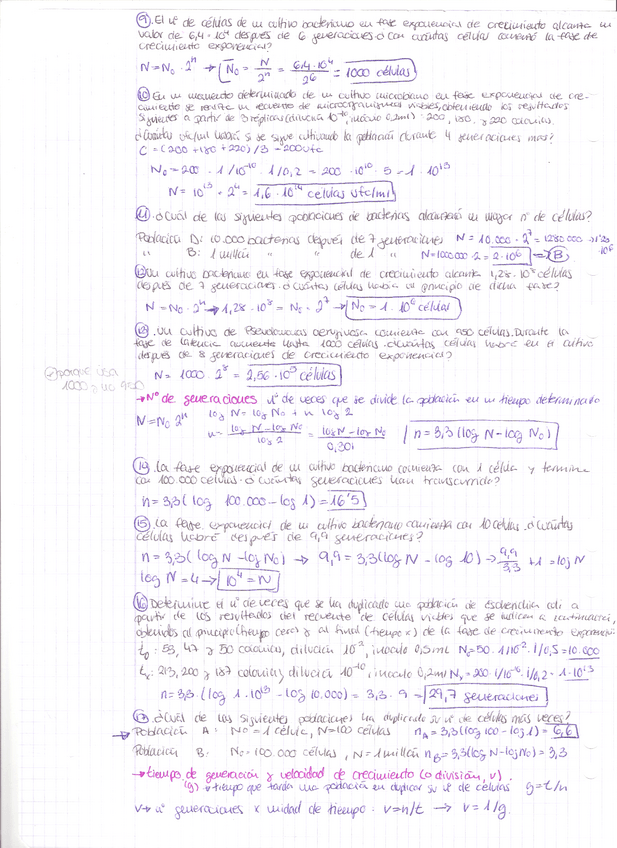 ⑨. El nº de células de un cultivo bacteriano en fase exponencial de crecimiento alcanza un
valor de 6,4·10⁴ después de 6 generaciones ¿con cuántas células comenzó la fase de
crecimiento exponencial?
N = N₀ · 2ⁿ → N₀ = N/2ⁿ = 6,4·10⁴/2⁶ = 1000 células
⑩ En un momento determinado de un cultivo microbiano en fase exponencial de cre-
cimiento se realiza un recuento de microorganismos viables, obteniendo los resultados
siguientes a partir de 3 réplicas (dilución 10⁻¹⁰, inóculo 0,2ml): 200, 180, y 220 colonias.
¿Cuántas ufc/ml habrá si se sigue cultivando la población durante 4 generaciones más?
C = (200 + 180 + 220)/3 = 200 ufc
N₀ = 200 · 1/10⁻¹⁰ · 1/0,2 = 200 · 10¹⁰ · 5 = 1 · 10¹³
N = 10¹³ · 2⁴ = 1,6 · 10¹⁴ células ufc/ml
⑪. ¿Cuál de las siguientes poblaciones de bacterias alcanzará un mayor nº de células?
Población A: 10.000 bacterias después de 7 generaciones N = 10.000 · 2⁷ = 1280000 → 1'28·10⁶
" B: 1 millón " " de 1 " N = 1000000·2 = 2·10⁶ → B
⑫ Un cultivo bacteriano en fase exponencial de crecimiento alcanza 1,28·10⁸ células
después de 7 generaciones ¿cuántas células había al principio de dicha fase?
N = N₀ · 2ⁿ → 1,28·10⁸ = N₀ · 2⁷ → N₀ = 1·10⁶ células
⑬. Un cultivo de Pseudomonas aeruginosa comienza con 950 células. Durante la
fase de latencia aumenta hasta 1000 células ¿cuántas células habrá en el cultivo
después de 8 generaciones de crecimiento exponencial?
N = 1000 · 2⁸ = 2,56·10⁵ células
porque usa
1000 y no 950
→ Nº de generaciones nº de veces que se divide la población en un tiempo determinado
N = N₀ 2ⁿ log N = log N₀ + n log 2
n = log N - log N₀/log 2 = log N - log N₀/0,301 n = 3,3 (log N - log N₀)
⑭. La fase exponencial de un cultivo bacteriano comienza con 1 célula y termina
con 100.000 células. ¿Cuántas generaciones han transcurrido?
n = 3,3 (log 100.000 - log 1) = 16'5
⑮. La fase exponencial de un cultivo bacteriano comienza con 10 células. ¿Cuántas
células habrá después de 9,9 generaciones?
n = 3,3 (log N - log N₀) → 9,9 = 3,3 (log N - log 10) → 9,9/3,3 + 1 = log N
log N = 4 → 10⁴ = N
⑯ Determine el nº de veces que se ha duplicado una población de Escherichia coli a
partir de los resultados del recuento de células viables que se indican a continuación,
obtenidos al principio (tiempo cero) y al final (tiempo x) de la fase de crecimiento exponencial
t₀: 53, 47 y 50 colonias, dilución 10⁻², inóculo 0,5ml N₀ = 50 · 1/10⁻² · 1/0,5 = 10.000
tₓ: 213, 200 y 187 colonias, dilución 10⁻¹⁰, inóculo 0,2ml Nₓ = 200 · 1/10⁻¹⁰ · 1/0,2 = 1·10¹³
n = 3,3 · (log 1·10¹³ - log 10.000) = 3,3 · 9 = 29,7 generaciones
⑰. ¿Cuál de las siguientes poblaciones ha duplicado su nº de células más veces?
→ Población A: N₀ = 1 célula, N = 100 células nA = 3,3 (log 100 - log 1) = 6,6
Población B: N₀ = 100.000 células, N = 1 millón nB = 3,3 (log N - log N₀) = 3,3
→ tiempo de generación y velocidad de crecimiento (o división, v).
(g) → tiempo que tarda una población en duplicar su nº de células g = t/n
v → nº generaciones x unidad de tiempo: v = n/t → v = 1/g.